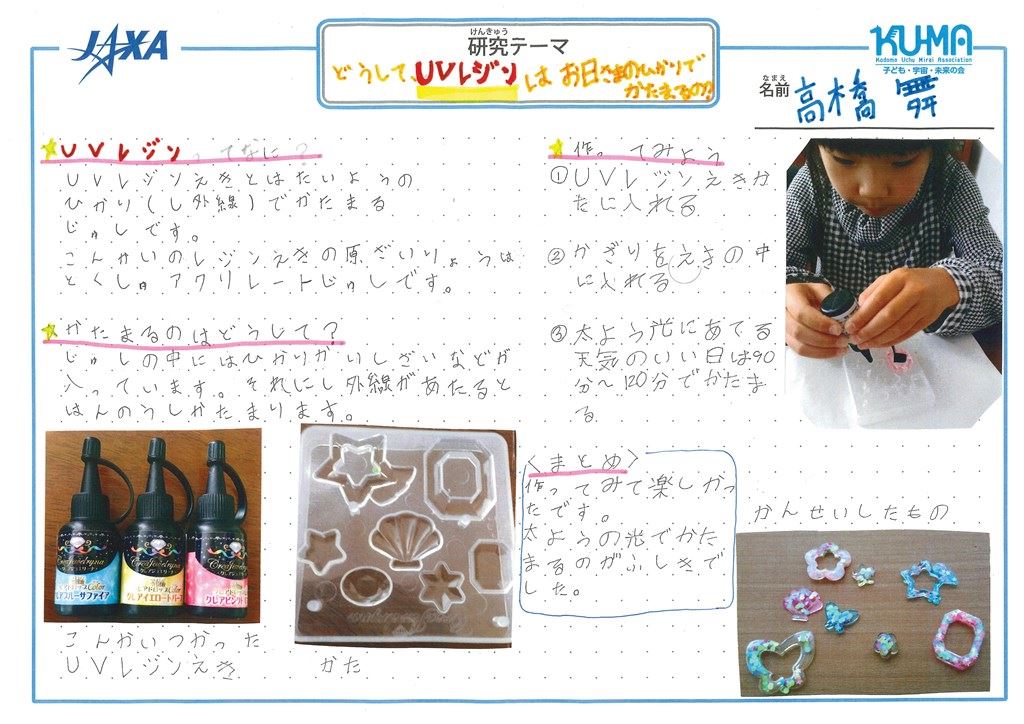 JAXA
けんきゅう
研究テーマ
どうして、UVレジンはお日さまのひかりで
かたまるの??
KU-MA
Kodomo Uchu Mirai Association
子ども・宇宙・未来の会
なまえ
名前
高橋 舞
UVレジンってなに?
UVレジンえきとはたいようの
ひかり(し外線)でかたまる
じゅしです。
こんかいのレジンえきの原ざいりょうは
とくしゅアクリレートじゅしです。
かたまるのはどうして?
じゅしの中にはひかりかいしざいなどが
入っています。それにし外線があたると
はんのうしかたまります。
こんかいつかった
UVレジンえき
かた
作ってみよう
①UVレジンえきをか
たに入れる
②かざりをえきの中
に入れる
③太よう光にあてる
天気のいい日は90
分~120分でかたま
る
<まとめ>
作ってみて楽しかっ
たです。
太ようの光でかた
まるのがふしぎで
した。
かんせいしたもの